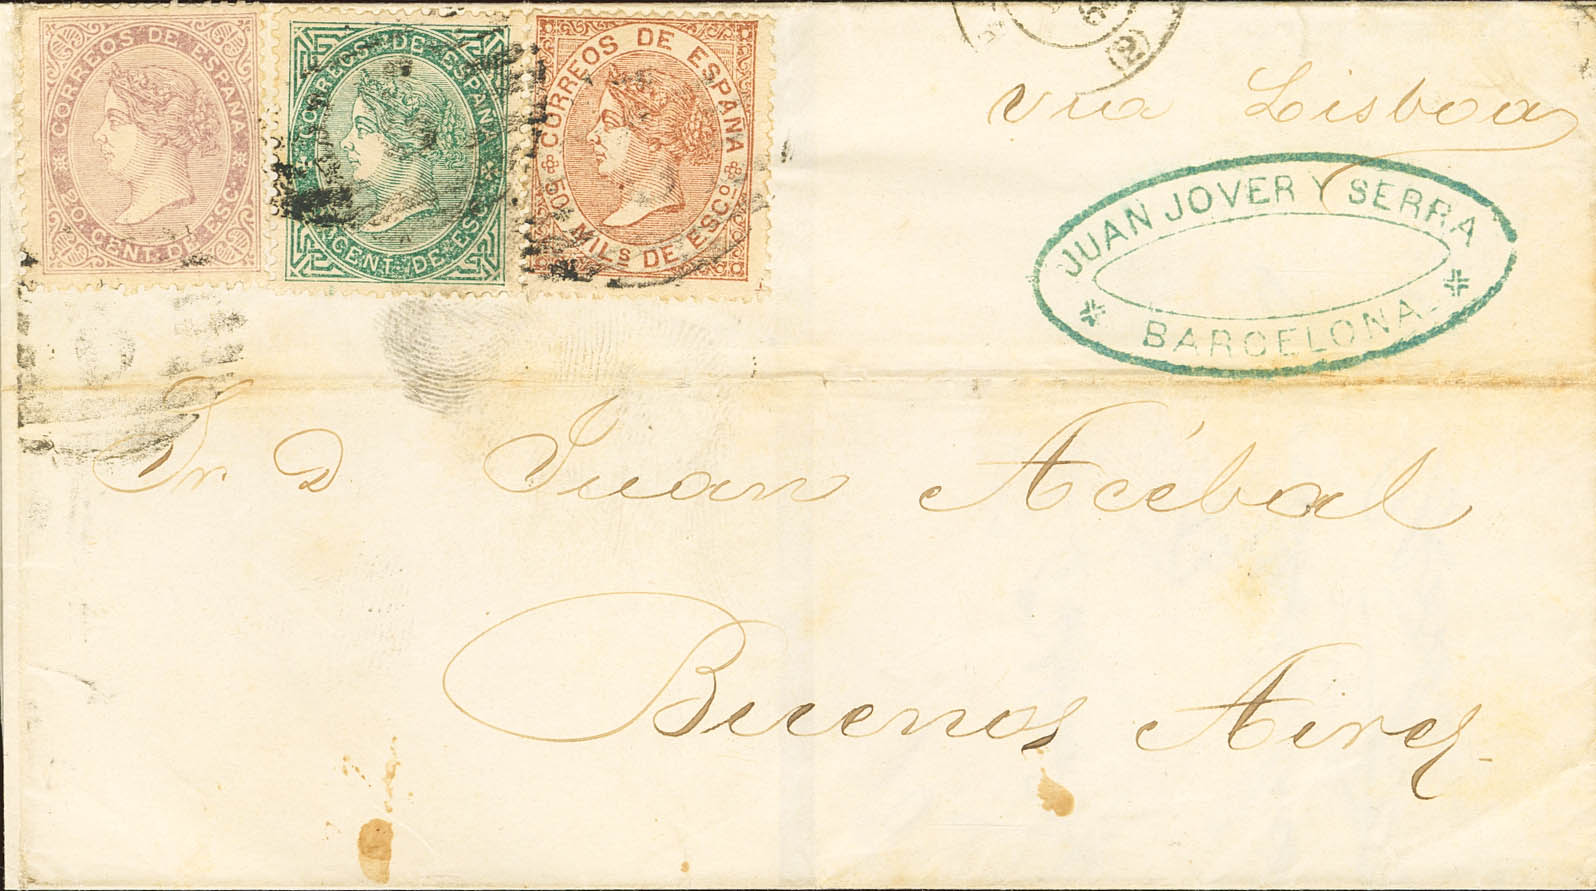 CORREOS DE ESPAÑA
20 CENT. DE ESC.
CORREOS DE ESPAÑA
CENT. DE ESC
CORREOS DE ESPAÑA
50 MILs DE ESCo.
(2)
via Lisboa
JUAN JOVER Y SERRA
BARCELONA
Sr. D Juan Acebal
Buenos Aires